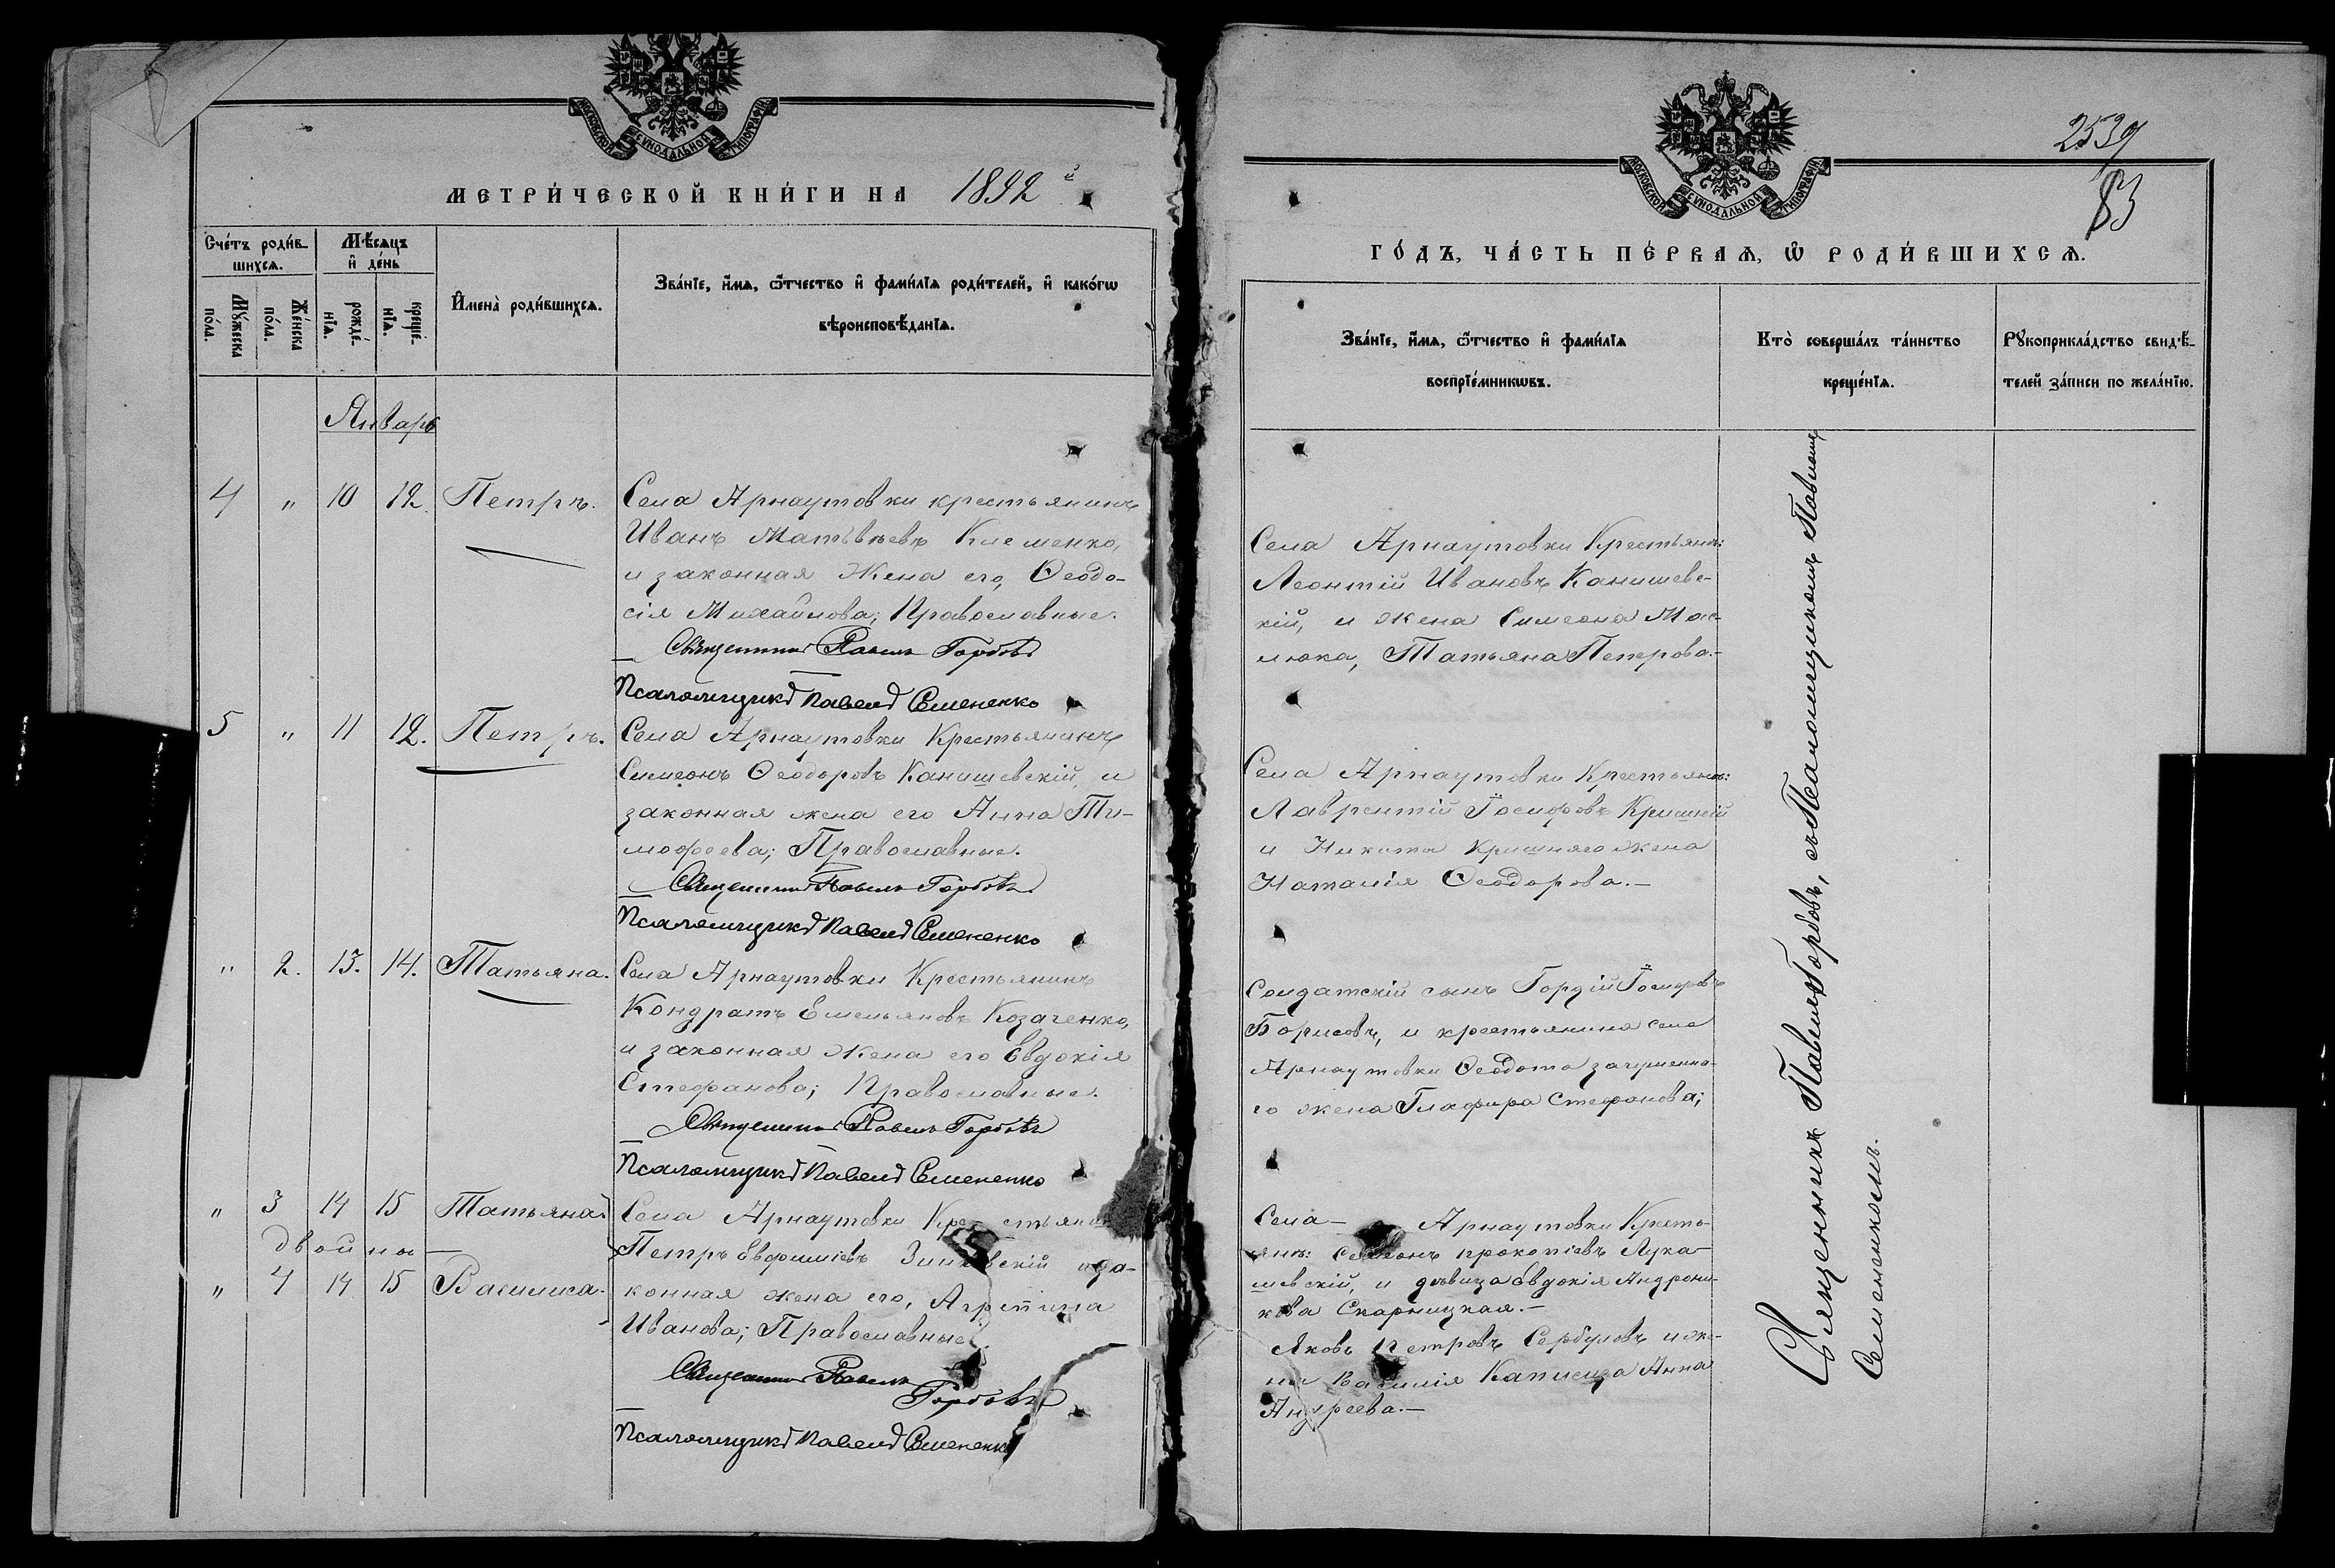 МОСКОВСКОЙ СѴНОДАЛЬНОЙ ТИПОГРАФІИ
МЕТРИ́ЧЕСКОЙ КНИ́ГИ НА 1892 й
Сче́тъ роди́в-
шихсѧ.
Мꙋ́жеска
по́ла.
Же́нска
по́ла.
Мѣ́сѧцъ
и҆ де́нь
рожде́-
нїѧ.
креще́-
нїѧ.
И҆мена̀ роди́вшихсѧ.
Зва́нїе, и҆́мѧ, ѻ҆́тчество и҆ фами́лїѧ роди́телей, и҆ како́гѡ
вѣроисповѣ́данїѧ.
Январь
4 " 10 12. Петръ.
Села Арнаутовки крестьянинъ
Иванъ Матвѣевъ Клеменко,
и законная жена его, Ѳеодо-
сія Михайлова; Православные.
Священникъ Павелъ Горбовъ
Псаломщикъ Павелъ Семененко
5 " 11 12. Петръ.
Села Арнаутовки Крестьянинъ
Симеонъ Ѳеодоровъ Канишевскій, и
законная жена его Анна Ти-
мофеева; Православные.
Священникъ Павелъ Горбовъ
Псаломщикъ Павелъ Семененко
" 2. 13. 14. Татьяна.
Села Арнаутовки Крестьянинъ
Кондратъ Емельяновъ Козаченко,
и законная жена его Евдокія
Стефанова; Православные.
Священникъ Павелъ Горбовъ
Псаломщикъ Павелъ Семененко
" 3 14 15 Татьяна
двойни
" 4 14 15 Василиса.
Села Арнаутовки Крестьянинъ
Петръ Евфиміевъ Зинковскій и за-
конная жена его, Агрепина
Иванова; Православные.
Священникъ Павелъ
Горбовъ
Псаломщикъ Павелъ Семененко
2539
83
МОСКОВСКОЙ СѴНОДАЛЬНОЙ ТИПОГРАФІИ
ГО́ДЪ, ЧА́СТЬ ПЕ́РВАѦ, Ѡ҆ РОДИ́ВШИХСѦ.
Зва́нїе, и҆́мѧ, ѻ҆́тчество и҆ фами́лїѧ
воспрїе́мникѡвъ.
Кто̀ соверша́лъ та́инство
креще́нїѧ.
Рꙋкоприкла́дство свидѣ́-
телей за́писи по жела́нїю.
Села Арнаутовки Крестьян:
Леонтій Ивановъ Канишевс-
кій, и жена Симеона Мас-
люка, Татьяна Петрова.-
Села Арнаутовки Крестьян:
Лаврентій Іосифовъ Кришній
и Никита Кришняго жена
Наталія Ѳеодорова.-
Солдатскій сынъ Гордій Іосифовъ
Борисовъ, и крестьянина села
Арнаутовки Ѳеодота
го жена Глафира Стефанова;
Села - Арнаутовки Кресть-
янъ: Симеонъ Прокопіевъ Лука-
шевскій, и дѣвица Евдокія Андрони-
кова Скарницкая.-
Яковъ Петровъ Сербуловъ и же-
на Василія Капиеца Анна
Андреева.-
Священникъ Павелъ Горбовъ, съ Псаломщикомъ Павломъ
Семененкомъ.